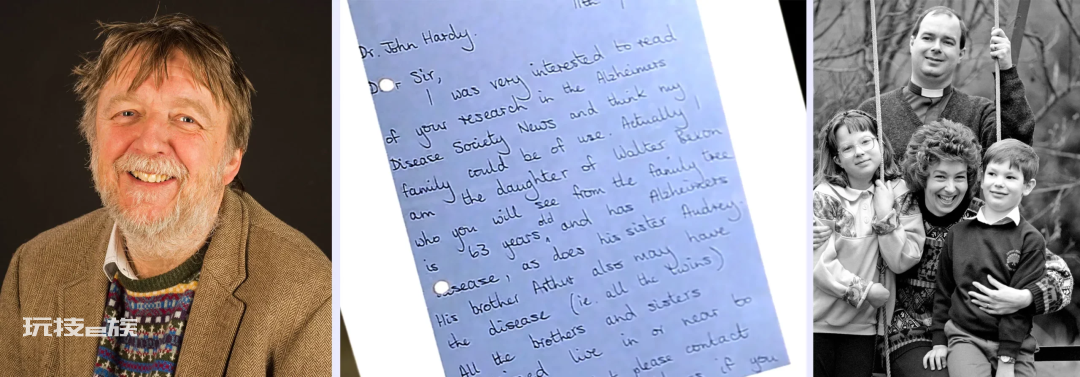 玩技e族
11th
Dr. John Hardy.
Dear Sir,
I was very interested to read
of your research in the Alzheimers
Disease Society News and think my
family could be of use. Actually I
am the daughter of Walter Bexon
who you will see from the family tree
is 63 years old and has Alzheimers
disease, as does his sister Audrey.
His brother Arthur also may have
the disease (ie. all the twins)
All the brothers and sisters
live in or near
please contact to
if you